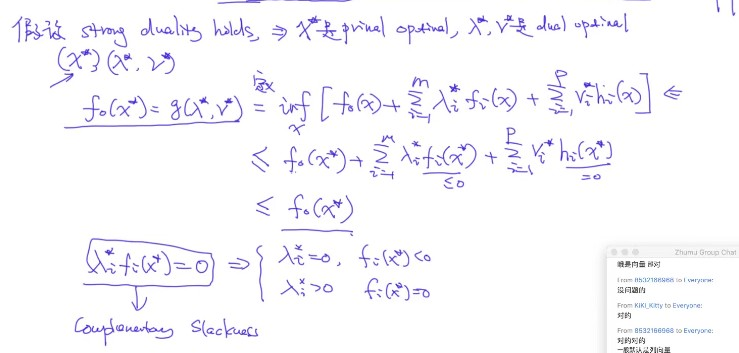 假设 strong duality holds, ⇒ x*是 primal optimal, λ*, ν*是 dual optimal
(x*) (λ*, ν*)
f₀(x*) = g(λ*, ν*) 定义= inf_x [ f₀(x) + Σ_{i=1}^{m} λᵢ* fᵢ(x) + Σ_{i=1}^{p} νᵢ* hᵢ(x) ] ⇐
≤ f₀(x*) + Σ_{i=1}^{m} λᵢ* fᵢ(x*) + Σ_{i=1}^{p} νᵢ* hᵢ(x*)
≤0 =0
≤ f₀(x*)
λᵢ* fᵢ(x*) = 0 ⇒ { λᵢ* = 0, fᵢ(x*) < 0
λᵢ* > 0 fᵢ(x*) = 0
Complementary Slackness
Zhumu Group Chat
From 8532166968 to Everyone:
没问题的
From KiKi_Kitty to Everyone:
对的
From 8532166968 to Everyone:
对的对的
一般默认是列向量